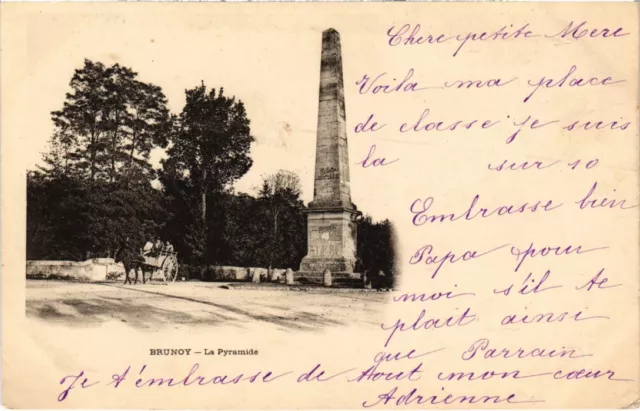 Chere petite Mere
Voila ma place
de classe je suis
la sur 10
Embrasse bien
Papa pour
moi s'il te
plait ainsi
que Parrain
BRUNOY — La Pyramide
Je t'embrasse de tout mon cœur
Adrienne